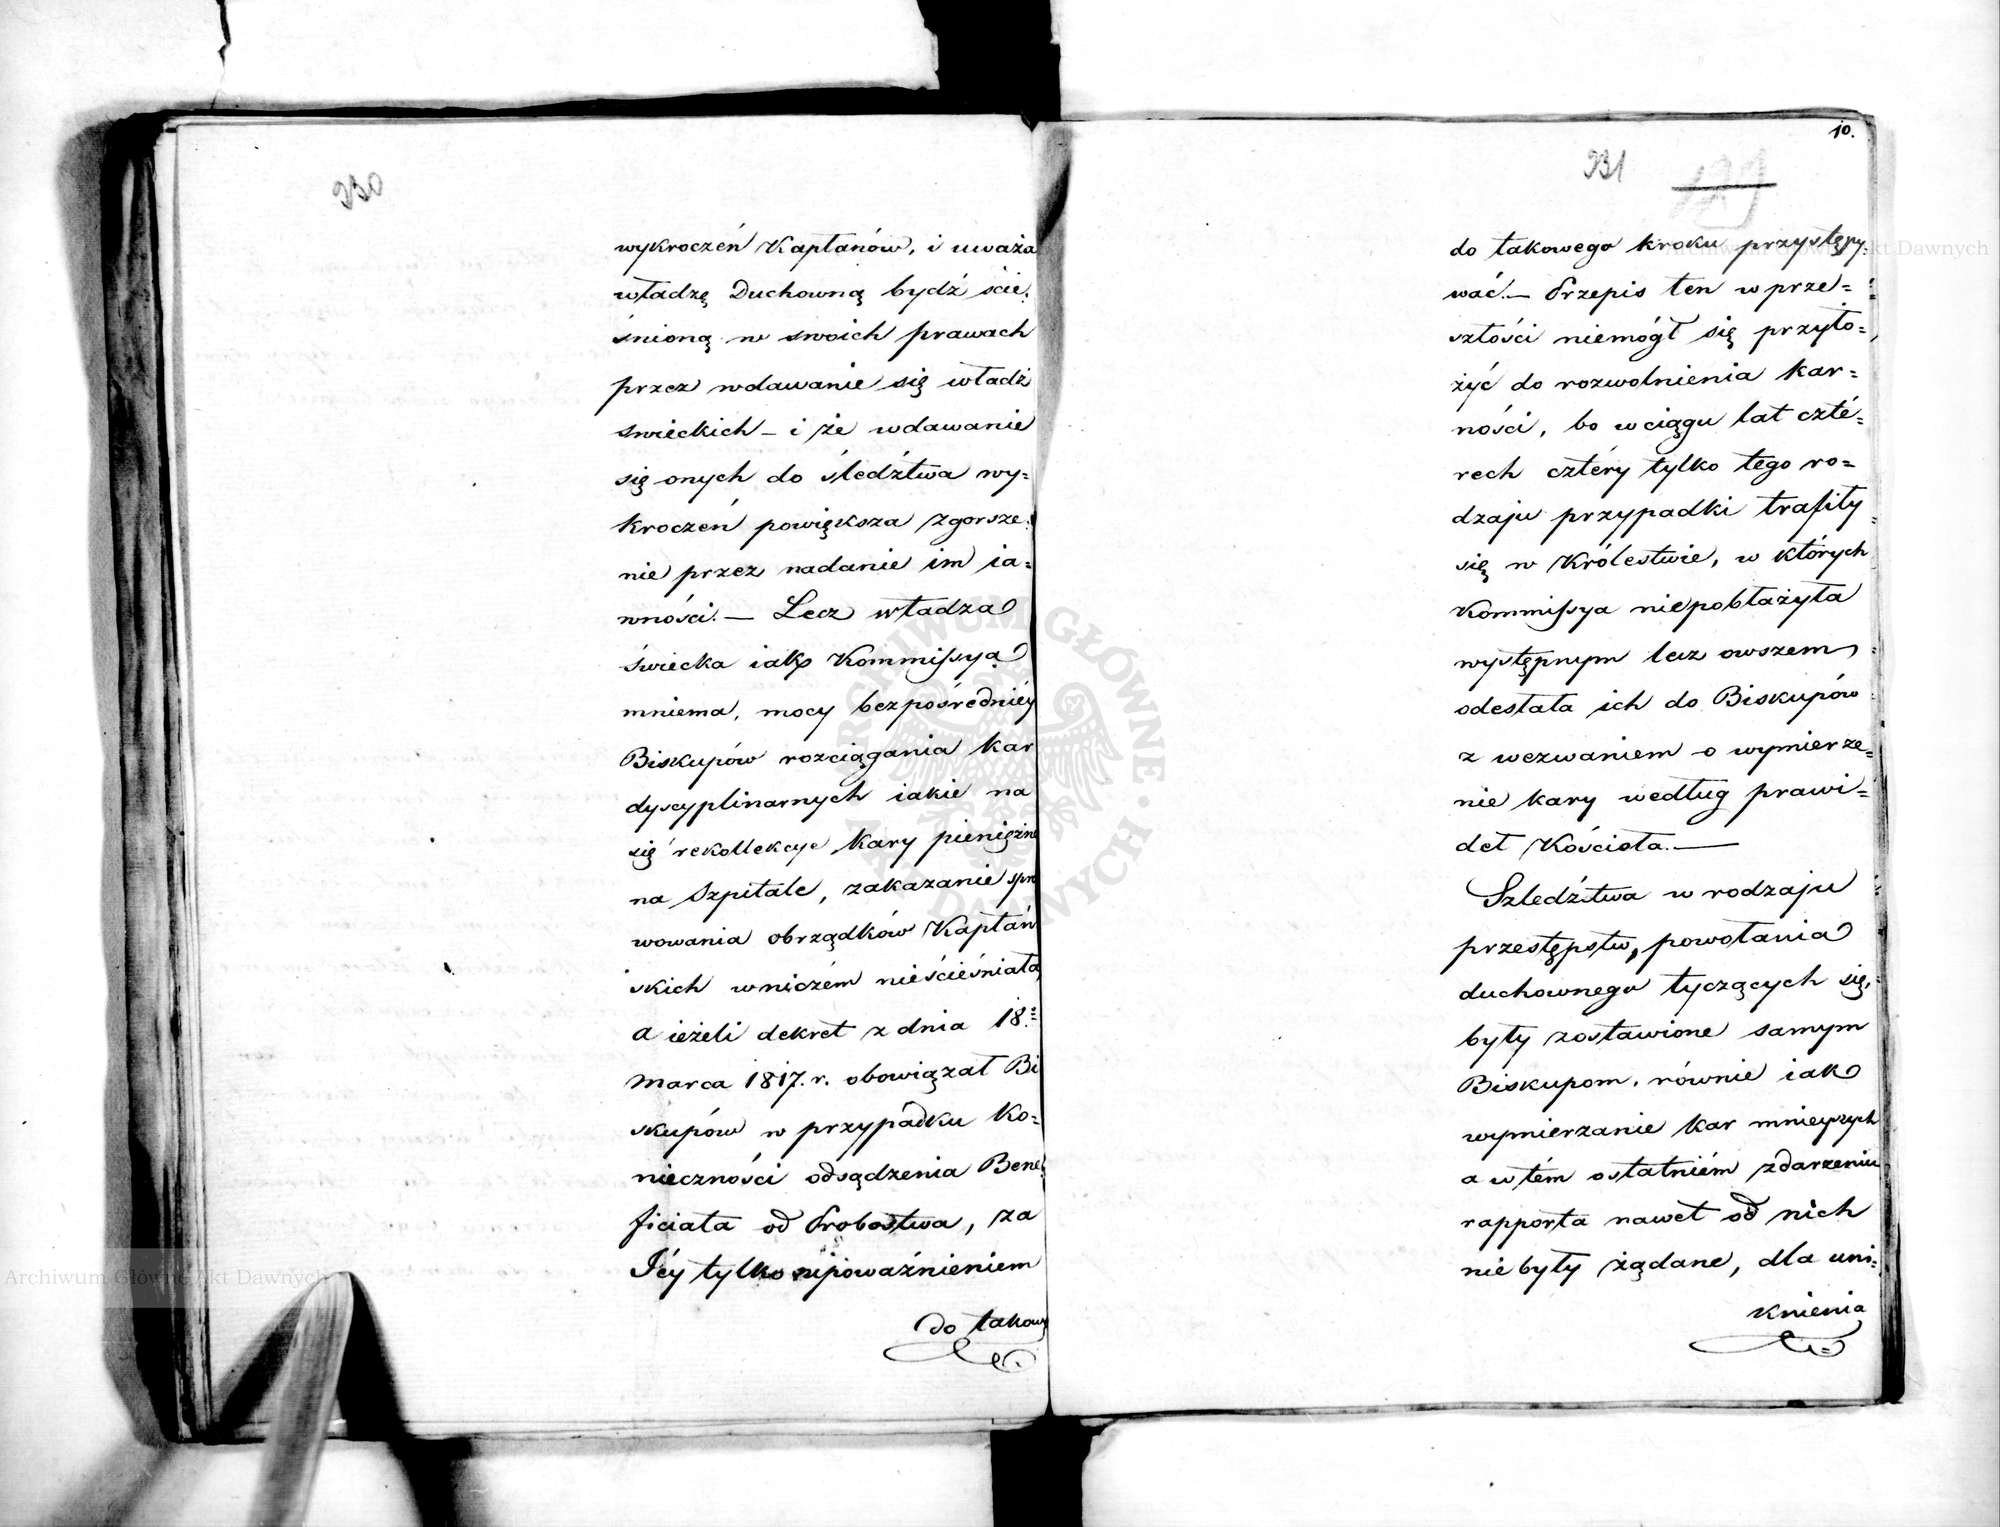 930
wykroczeń Kapłanów, i uważa
władzę Duchowną bydź ście:
śnioną w swoich prawach
przez wdawanie się władz
swieckich – i że wdawanie
się onych do śledźtwa wy=
kroczeń powiększa zgorsze:
nie przez nadanie im ia=
wności. – Lecz władza
świecka iako Kommissya
mniema, mocy bezpośredniéy
Biskupów rozciągania kar
dyscyplinarnych iakie na
się rekollekcye kary pieniężne
na Szpitale, zakazanie spra
wowania obrządków Kapłań
skich wniczém nieścieśniała,
a ieżeli dekret z dnia 18.
Marca 1817. r. obowiązał Bi
skupów w przypadku ko=
nieczności odsądzenia Bene:
ficiata od Probostwa, za
Iéy tylko upoważnieniem
do takowe
10.
931
do takowego kroku przystępy.
wać. – Przepis ten w prze=
szłości niemógł się przyło=
żyć do rozwolnienia kar=
ności, bo w ciągu lat czté=
rech cztéry tylko tego ro=
dzaju przypadki trafiły
się w Królestwie, w których
Kommissya niepobłażyła
występnym lecz owszem,
odesłała ich do Biskupów
z wezwaniem o wymierze=
nie kary według prawi=
deł Kościoła. –
Szledźtwa w rodzaju
przestępstw, powołania
duchownego tyczących się,
były zostawione samym
Biskupom, równie iak
wymierzanie kar mnieyszych
a w tém ostatniém zdarzeniu
rapporta nawet od nich
nie były żądane, dla uni=
knienia
Archiwum Główne Akt Dawnych
Archiwum Główne Akt Dawnych
ARCHIWUM GŁÓWNE • AKT DAWNYCH •